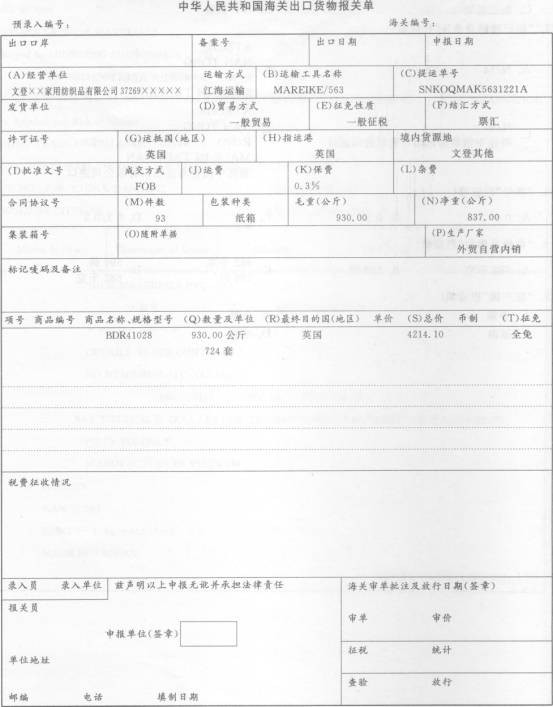 中华人民共和国海关出口货物报关单
预录入编号： 海关编号：
出口口岸 备案号 出口日期 申报日期
(A)经营单位 运输方式 (B)运输工具名称 (C)提运单号
文登××家用纺织品有限公司37269××××× 江海运输 MAREIKE/563 SNKOQMAK5631221A
发货单位 (D)贸易方式 (E)征免性质 (F)结汇方式
一般贸易 一般征税 票汇
许可证号 (G)运抵国(地区) (H)指运港 境内货源地
英国 英国 文登其他
(D)批准文号 成交方式 (J)运费 (K)保费 (L)杂费
FOB 0.3%
合同协议号 (M)件数 包装种类 毛重(公斤) (N)净重(公斤)
93 纸箱 930.00 837.00
集装箱号 (O)随附单据 (P)生产厂家
外贸自营内销
标记唛码及备注
项号 商品编号 商品名称、规格型号 (Q)数量及单位 (R)最终目的国(地区) 单价 (S)总价 币制 (T)征免
BDR41028 930.00公斤 英国 4214.10 全免
724套
税费征收情况
录入员 录入单位 兹声明以上申报无讹并承担法律责任 海关审单批注及放行日期(签章)
报关员
审单 审价
申报单位(签章)
征税 统计
单位地址
查验 放行
邮编 电话 填制日期